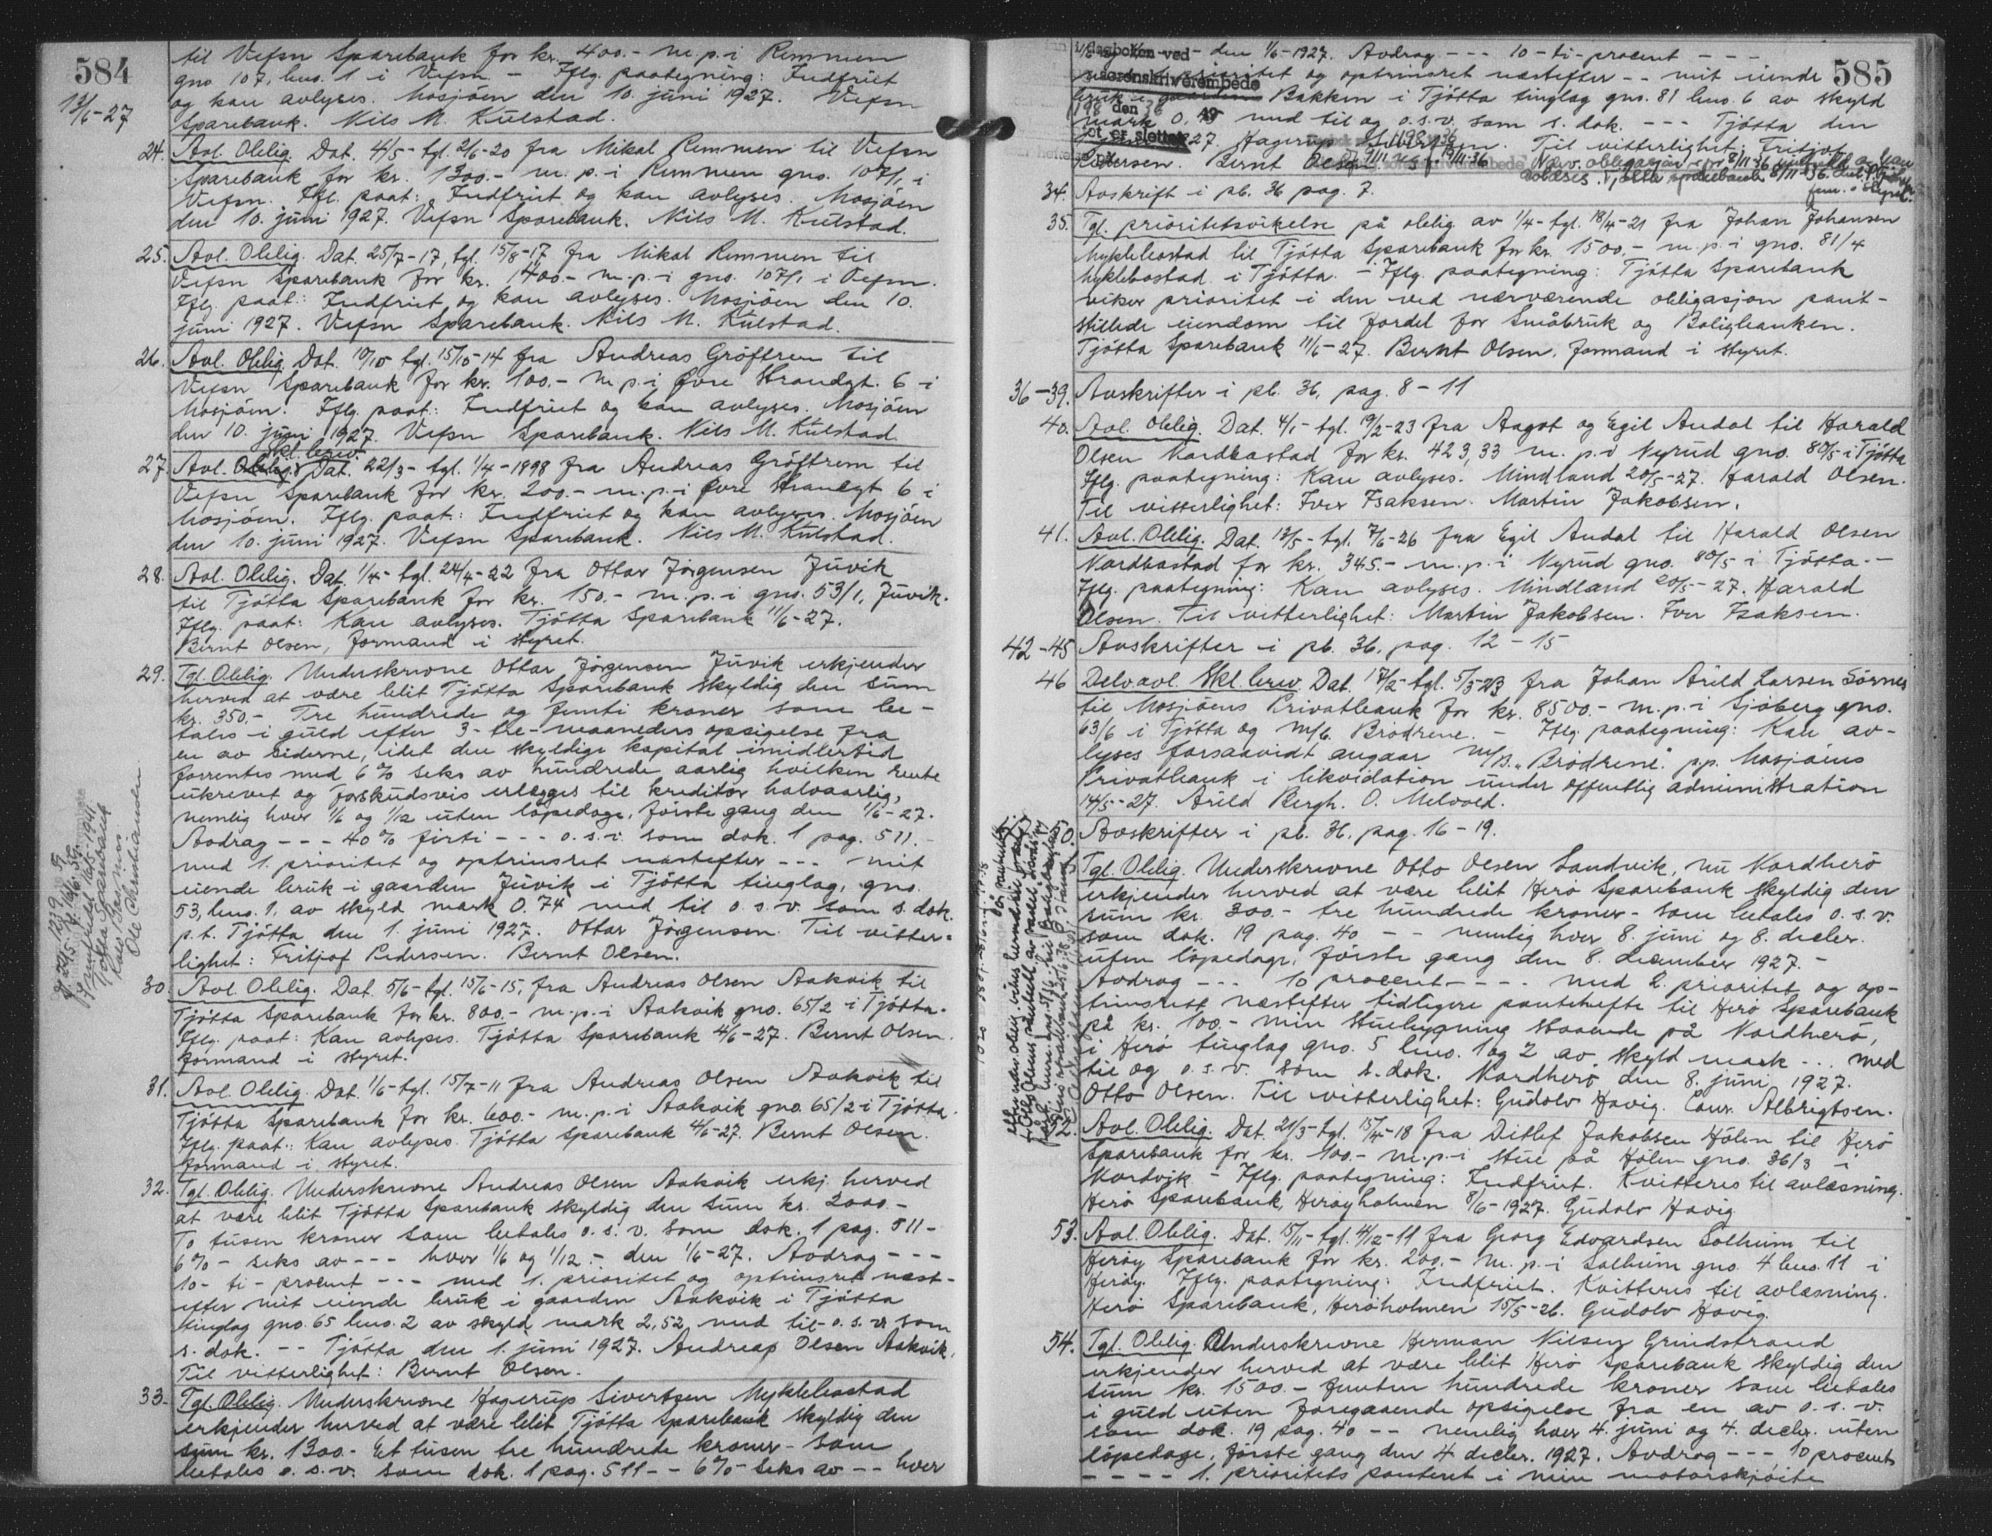 584
13/6-27
til Vefsn Sparebank for kr. 400.- m.p.i Remmen
gno 107, bno. 1 i Vefsn - Iflg. paategning: Indfriet
og kan avlyses. Mosjöen den 10. juni 1927. Vefsn
Sparebank. Nils M. Kulstad.
24. Avl. Oblig. Dat. 4/5- tgl. 2/6-20 fra Mikal Remmen til Vefsn
Sparebank for kr. 1300.- m.p.i Remmen gno. 107/1 i
Vefsn. Iflg. paat: Indfriet og kan avlyses. Mosjöen
den 10. juni 1927. Vefsn Sparebank. Nils M. Kulstad.
25. Avl. Oblig. Dat. 25/7-17, tgl. 15/8-17 fra Mikal Remmen til
Vefsn Sparebank for kr. 1400.- m.p.i gno. 107/1 i Vefsn.
Iflg. paat.: Indfriet og kan avlyses. Mosjöen den 10.
juni 1927. Vefsn Sparebank. Nils M. Kulstad.
26. Avl. Oblig. Dat. 10/10 tgl. 15/10-14 fra Andreas Gröftrem til
Vefsn Sparebank for kr. 100.- m.p.i Övre Strandgt. 6 i
Mosjöen. Iflg. paat: Indfriet og kan avlyses. Mosjöen
den 10. juni 1927. Vefsn Sparebank. Nils M. Kulstad.
Skl. brev
27. Avl. Oblig. Dat. 22/3- tgl. 1/4-1898 fra Andreas Gröftrem til
Vefsn Sparebank for kr. 200.- m.p.i Övre Strandgt 6 i
Mosjöen. Iflg. paat: Indfriet og kan avlyses. Mosjöen
den 10. juni 1927. Vefsn Sparebank. Nils M. Kulstad.
28. Avl. Oblig. Dat. 1/4- tgl. 24/4-22 fra Ottar Jörgensen Juvik
til Tjötta Sparebank for kr. 150.- m.p.i gno. 53/1, Juvik.
Iflg. paat: Kan avlyses. Tjötta Sparebank 11/6-27.
Bernt Olsen, formand i styret.
29. Tgl. Oblig. Underskrevne Ottar Jörgensen Juvik erkjender
herved at være blit Tjötta Sparebank skyldig den sum
kr. 350.- Tre hundrede og femti kroner som be-
tales i guld efter 3- tre- maaneders opsigelse fra
en av siderne, idet den skyldige kapital imidlertid
forrentes med 6% seks av hundrede aarlig hvilken rente
ukrevet og forskudsvis erlægges til kreditor halvaarlig,
nemlig hver 1/6 og 1/12 uten löpedage, förste gang den 1/6-27.
Avdrag --- 40% firti --- o.s.v. som dok. 1 pag. 511.-
med 1. prioritet og optrinsret næstefter --- mit
eiende bruk i gaarden Juvik i Tjötta tinglag, gno.
53, bno. 1, av skyld mark 0.74 med til o.s.v. som s. dok.
p.t. Tjötta den 1. juni 1927. Ottar Jörgensen. Til vitter-
lighet: Fritjof Pedersen. Bernt Olsen.
Indfriet 16/5-1941
Tjötta Sparebank
Ole Christiansen
30. Avl. Oblig. Dat. 5/6- tgl. 15/6-15, fra Andreas Olsen Aakvik til
Tjötta Sparebank for kr. 800.- m.p.i Aakvik gno. 65/2 i Tjötta.
Iflg. paat: Kan avlyses. Tjötta Sparebank 4/6-27. Bernt Olsen.
formand i styret.
31. Avl. Oblig. Dat. 1/6- tgl. 15/7-11 fra Andreas Olsen Aakvik til
Tjötta Sparebank for kr. 600.- m.p.i Aakvik gno. 65/2 i Tjötta.
Iflg. paat: Kan avlyses. Tjötta Sparebank 4/6-27. Bernt Olsen.
formand i styret.
32. Tgl. Oblig. Underskrevne Andreas Olsen Aakvik erkj. herved
at være blit Tjötta Sparebank skyldig den sum kr. 2000.-
To tusen kroner som betales o.s.v. som dok. 1 pag. 511-
6% - seks av --- hver 1/6 og 1/12.- den 1/6-27. Avdrag ---
10- ti- procent --- med 1. prioritet og optrinsret næst-
efter mit eiende bruk i gaarden Aakvik i Tjötta
tinglag gno. 65 bno. 2 av skyld mark 2,52 med til o.s.v. som
s. dok. -- Tjötta den 1. juni 1927. Andreas Olsen Aakvik.
Til vitterlighet: Bernt Olsen.
33. Tgl. Oblig. Underskrevne Hagerup Sivertsen Myklebostad
erkjender herved at være blit Tjötta Sparebank skyldig den
sum kr. 1300.- Et tusen tre hundrede kroner - som
betales o.s.v. som dok. 1 pag. 511 -- 6% seks av -- hver
585
den 1/6-1927. Avdrag --- 10- ti- procent ---
prioritet og optrinsret næstefter -- mit eiende
bruk i gaarden Bakken i Tjötta tinglag gno. 81 bno. 6 av skyld
mark 0, med til og o.s.v. som s. dok. --- Tjötta den
27 Hagerup Sivertsen. Til vitterlighet: Fritjof
Pedersen. Bernt Olsen
dagboken ved
sorenskriverembede
er slettet
34. Avskrift i pb. 36 pag. 7.
35. Tgl. prioritetsvikelse på oblig av 1/4- tgl. 18/4-21 fra Johan Johansen
Myklebostad til Tjötta Sparebank for kr. 1500.- m.p.i gno. 81/4
Myklebostad i Tjötta. - Iflg. paategning: Tjötta Sparebank
viker prioritet i den ved nærværende obligasjon pant-
stillede eiendom til fordel for Småbruk og Boligbanken.
Tjötta Sparebank 11/6-27. Bernt Olsen, formand i styret.
36-39. Avskrifter i pb. 36, pag. 8-11
40. Avl. Oblig. Dat. 4/1- tgl. 19/2-23 fra Aagot og Egil Andal til Harald
Olsen Nordbostad for kr. 423,33 m.p.i Nyrud gno. 80/5 i Tjötta
Iflg. paategning: Kan avlyses. Mindland 20/5-27. Harald Olsen.
Til vitterlighet: Iver Isaksen. Martin Jakobsen.
41. Avl. Oblig. Dat. 13/5- tgl. 7/6-26 fra Egil Andal til Harald Olsen
Nordbostad for kr. 345.- m.p.i Nyrud gno. 80/5 i Tjötta.-
Iflg. paategning: Kan avlyses. Mindland 20/5-27. Harald
Olsen. Til vitterlighet: Martin Jakobsen. Iver Isaksen.
42-45 Avskrifter i pb. 36, pag. 12-15
46 Delvavl. Skl. brev Dat. 17/2- tgl. 5/3-23 fra Johan Arild Larsen Sörnes
til Mosjöens Privatbank for kr. 8500.- m.p.i Sjöberg gno.
63/6 i Tjötta og m/b. Brödrene. - Iflg. paategning: Kan av-
lyses forsaavidt angaar m/b. "Brödrene". pp. Mosjöens
Privatbank i likvidation under offentlig administration
14/5-27. Arild Bergh. O. Melvold.
Avskrifter i pb. 36, pag. 16-19.
Tgl. Oblig. Underskrevne Otto Olsen Sandvik, nu Nordherö
erkjender herved at være blit Herö Sparebank skyldig den
sum kr. 300.- tre hundrede kroner - som betales o.s.v.
som dok. 19 pag. 40 -- nemlig hver 8. juni og 8. decbr.
uten löpedage, förste gang den 8. december 1927.-
Avdrag --- 10 procent ---- med 2. prioritet og op-
trinsrett næstefter tidligere panteheftе til Herö Sparebank
på kr. 100.- min stuebygning staaende på Nordherö,
i Herö tinglag gno. 5 bno. 1 og 2 av skyld mark .. med
til og o.s.v. som s. dok. Nordherö den 8. juni 1927.
Otto Olsen. Til vitterlighet: Gudolv Havig. Conr. Albrigtsen.
52. Avl. Oblig. Dat. 21/3- tgl. 15/4-18 fra Ditlef Jakobsen Hölen til Herö
Sparebank for kr. 100.- m.p.i stue på Hölen gno. 36/3 i
Nordvik - Iflg. paategning: Indfriet. Kvitteres til avlæsning.
Herö Sparebank, Heröyholmen 8/6-1927. Gudolv Havig
53. Avl. Oblig. Dat. 15/11- tgl. 4/12-11 fra Georg Edvardsen Solheim til
Heröy Sparebank for kr. 200.- m.p.i Solheim gno. 4 bno. 11 i
Heröy. Iflg. paategning: Indfriet. Kvitteres til avlæsning.
Herö Sparebank, Heröholmen 15/5-26. Gudolv Havig.
54. Tgl. Oblig. Underskrevne Herman Nilsen Grindstrand
erkjender herved at være blit Herö Sparebank skyldig den
sum kr. 1500.- femten hundrede kroner som betales
i guld uten foregaaende opsigelse fra en av o.s.v.
som dok. 19 pag. 40 -- nemlig hver 4. juni og 4. decbr. uten
löpedage, förste gang den 4. decbr. 1927. Avdrag --- 10 procent
---- 1. prioritets panteret i min motorskjöite